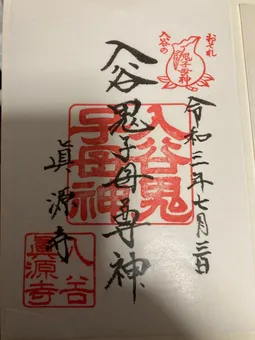 おそれ
入谷の
鬼子母神
令和三年七月三日
入谷鬼子母尊神
眞源寺
入谷鬼
子母神
入谷
眞源寺